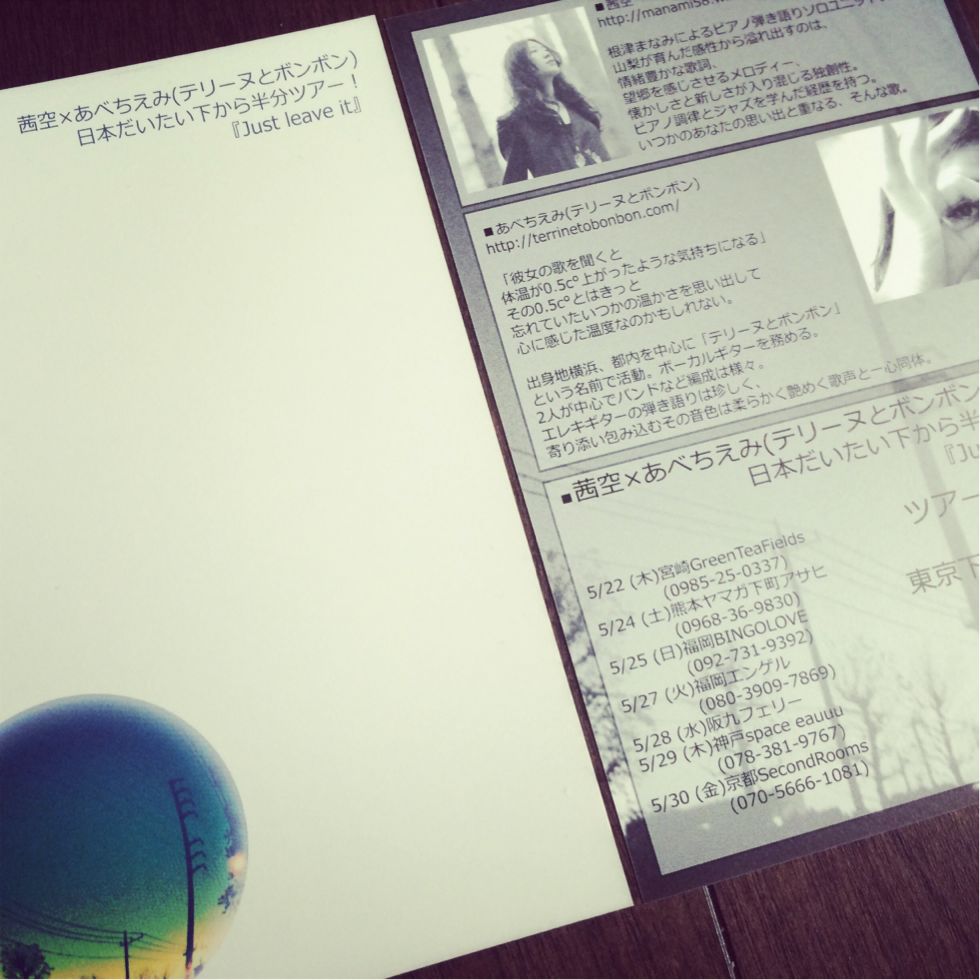 茜空×あべちえみ(テリーヌとボンボン)
日本だいたい下から半分ツアー！
『Just leave it』
■茜空
http://manami58.
根津まなみによるピアノ弾き語りソロユニット
山梨が育んだ感性から溢れ出すのは、
情緒豊かな歌詞、
望郷を感じさせるメロディー、
懐かしさと新しさが入り混じる独創性。
ピアノ調律とジャズを学んだ経歴を持つ。
いつかのあなたの思い出と重なる、そんな歌。
■あべちえみ(テリーヌとボンボン)
http://terrinetobonbon.com/
「彼女の歌を聞くと
体温が0.5c°上がったような気持ちになる」
その0.5c°とはきっと
忘れていたいつかの温かさを思い出して
心に感じた温度なのかもしれない。
出身地横浜、都内を中心に「テリーヌとボンボン」
という名前で活動。ボーカルギターを務める。
2人が中心でバンドなど編成は様々。
エレキギターの弾き語りは珍しく、
寄り添い包み込むその音色は柔らかく艶めく歌声と一心同体。
■茜空×あべちえみ(テリーヌとボンボン
日本だいたい下から半
『Ju
ツアー
東京下
5/22 (木)宮崎GreenTeaFields
(0985-25-0337)
5/24 (土)熊本ヤマガ下町アサヒ
(0968-36-9830)
5/25 (日)福岡BINGOLOVE
(092-731-9392)
5/27 (火)福岡エンゲル
(080-3909-7869)
5/28 (水)阪九フェリー
5/29 (木)神戸space eauuu
(078-381-9767)
5/30 (金)京都SecondRooms
(070-5666-1081)